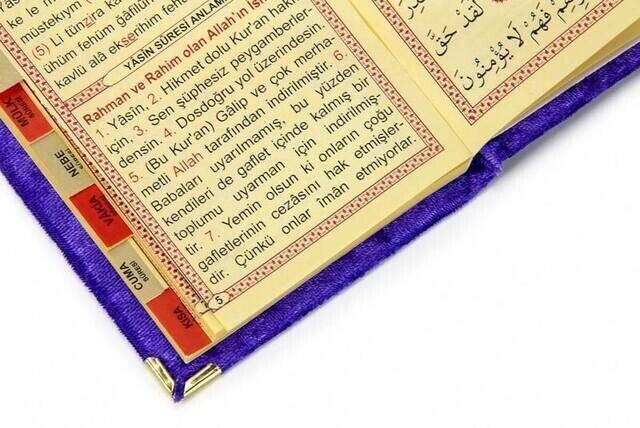 ke le m
müstekym
(5) Li tünzira
ühüm fehüm ğâfilûn
kavlü alâ ekserihim fehüm
YASİN SÛRESİ ANLAMI
Rahman ve Rahim olan Allah'ın is
1. Yâsîn, 2. Hikmet dolu Kur'an hakkı
için, 3. Sen şüphesiz peygamberler-
densin. 4. Dosdoğru yol üzerindesin.
5. (Bu Kur'an) Gâlip ve çok merha-
metli Allah tarafından indirilmiştir. 6.
Babaları uyarılmamış, bu yüzden
kendileri de gaflet içinde kalmış bir
toplumu uyarman için indirilmiş-
tir. 7. Yemin olsun ki onların çoğu
gafletlerinin cezâsını hak etmişler-
dir. Çünkü onlar îmân etmiyorlar.
5
لَقَدْ حَقَّ
فَهُمْ لَا يُؤْمِنُونَ
MÜLK
SÛRESİ
NEBE
VAKIA
CUMA
SÛRESİ
KISA